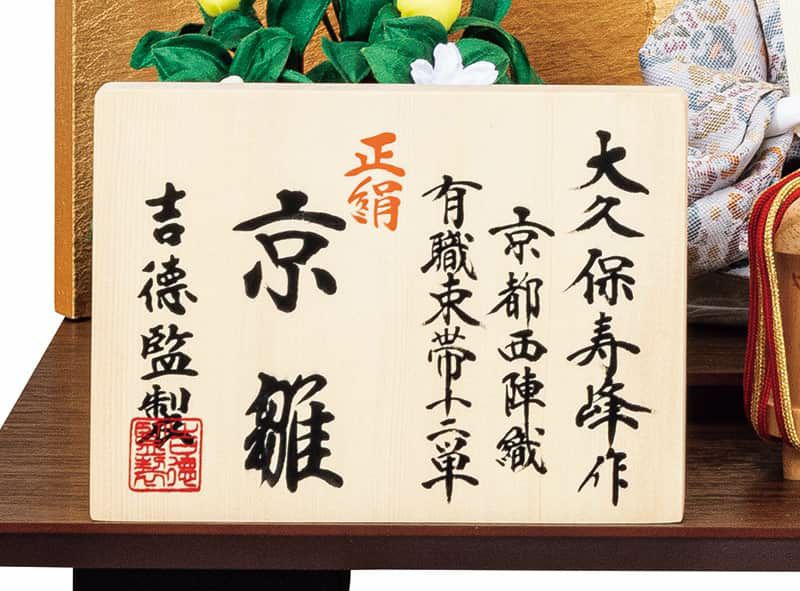 大久保寿峰作
京都西陣織
有職束帯十二単
正絹
京雛
吉德監製
吉德監製